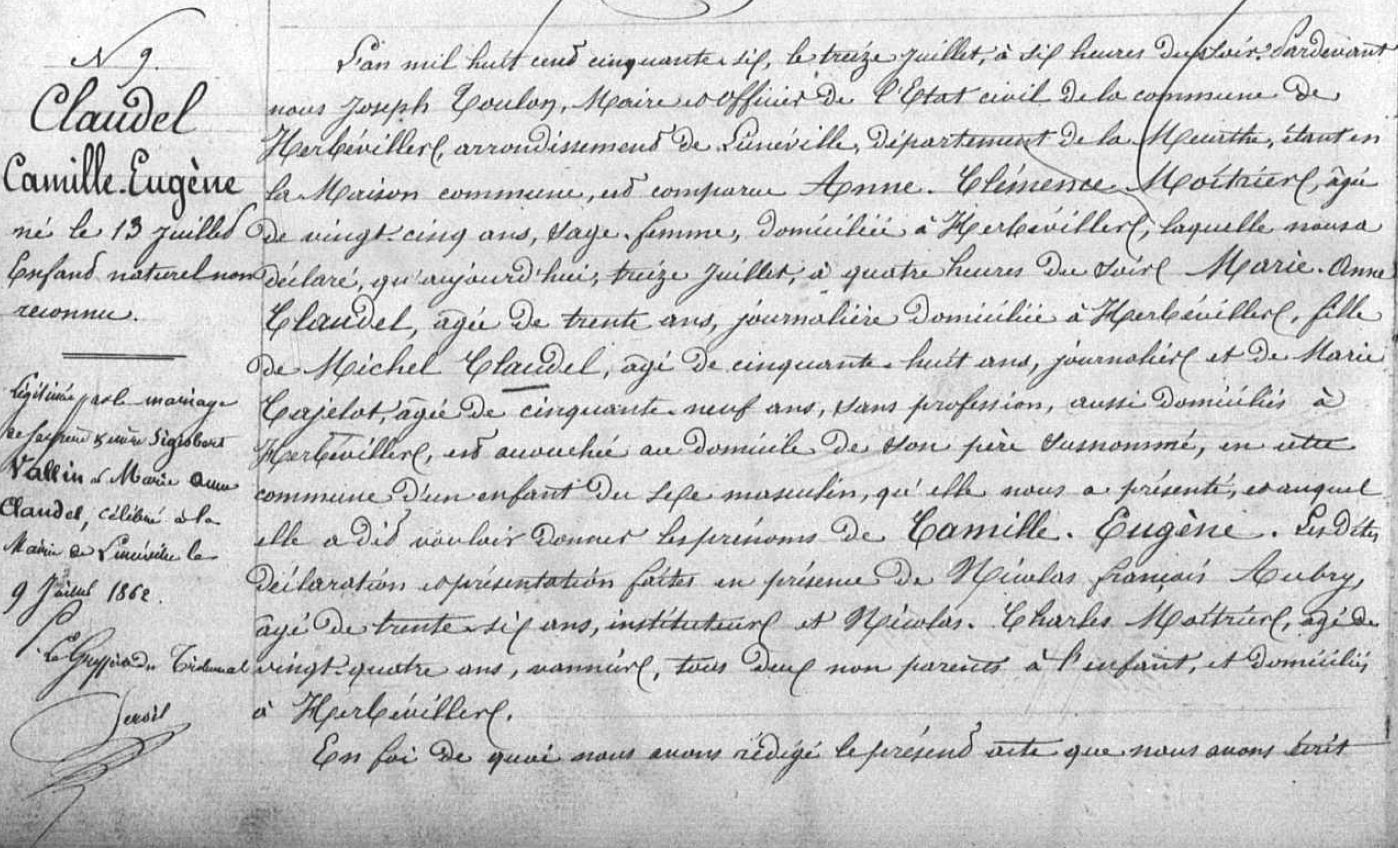 N 9.
Claudel
Camille-Eugène
né le 13 Juillet
Enfant naturel non
reconnu.
Légitimé par le mariage
de ses père & mère Sigisbert
Vallin et Marie Anne
Claudel, célébré à la
Mairie de Lunéville le
9 Juillet 1862.
Le Greffier du Tribunal
L'an mil huit cent cinquante-six, le treize Juillet, à six heures du soir. Pardevant
nous Joseph Toulon, Maire et officier de l'Etat civil de la commune de
Herbéviller, arrondissement de Lunéville, département de la Meurthe, étant en
la Maison commune, est comparue Anne-Clémence Moitrier, âgée
de vingt-cinq ans, sage-femme, domiciliée à Herbéviller, laquelle nous a
déclaré, qu'aujourd'hui, treize Juillet, à quatre heures du soir Marie-Anne
Claudel, âgée de trente ans, journalière domiciliée à Herbéviller, fille
de Michel Claudel, âgé de cinquante-huit ans, journalier et de Marie
Cajelot, âgée de cinquante-neuf ans, sans profession, aussi domiciliés à
Herbéviller, est accouchée au domicile de son père susnommé, en cette
commune d'un enfant du sexe masculin, qu'elle nous a présenté, et auquel
elle a dit vouloir donner les prénoms de Camille-Eugène. Les dites
déclaration et présentation faites en présence de Nicolas françois Aubry,
âgé de trente-six ans, instituteur et Nicolas-Charles Moitrier, âgé de
vingt-quatre ans, vannier, tous deux non parents à l'enfant, et domiciliés
à Herbéviller.
En foi de quoi nous avons rédigé le présent acte que nous avons écrit